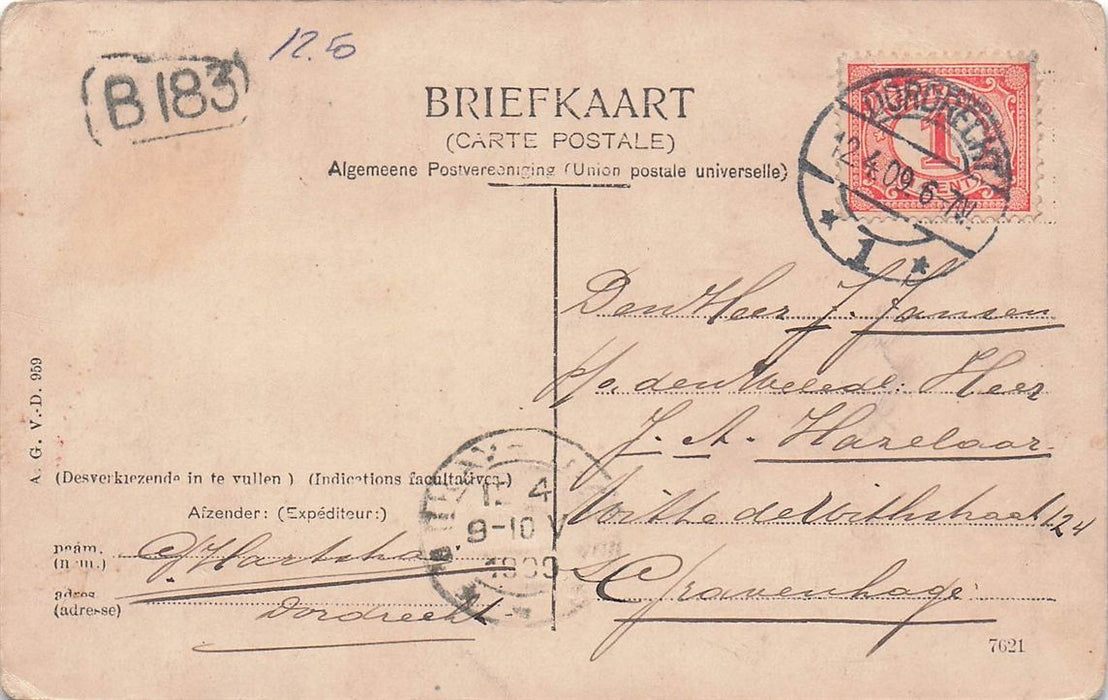 12.5
B 183
BRIEFKAART
(CARTE POSTALE)
Algemeene Postvereeniging (Union postale universelle)
DORDRECHT
12.4.09. 6-7N.
1
1
CENT
Den Heer J. Jansen
p/a. den Weled: Heer
J. A. Hazelaar.
Witte de Withstraat 124
s Gravenhage
A. G. V.-D. 959
(Desverkiezende in te vullen) (Indications facultatives.)
Afzender: (Expéditeur:)
naam.
(nom.)
adres
(adresse)
Dordrecht
4
9-10 V
7621